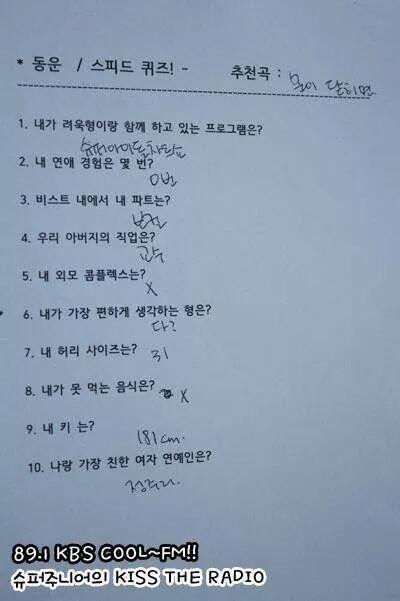 * 동운 / 스피드 퀴즈! - 추천곡 : 문이 닫히면
1. 내가 려욱형이랑 함께 하고 있는 프로그램은?
슈퍼아이돌차트쇼
2. 내 연애 경험은 몇 번?
0번
3. 비스트 내에서 내 파트는?
보컬
4. 우리 아버지의 직업은?
교수
5. 내 외모 콤플렉스는?
X
6. 내가 가장 편하게 생각하는 형은?
다?
7. 내 허리 사이즈는? 31
8. 내가 못 먹는 음식은? X
9. 내 키 는?
181cm.
10. 나랑 가장 친한 여자 연예인은?
정주리
89.1 KBS COOL~FM!!
슈퍼주니어의 KISS THE RADIO